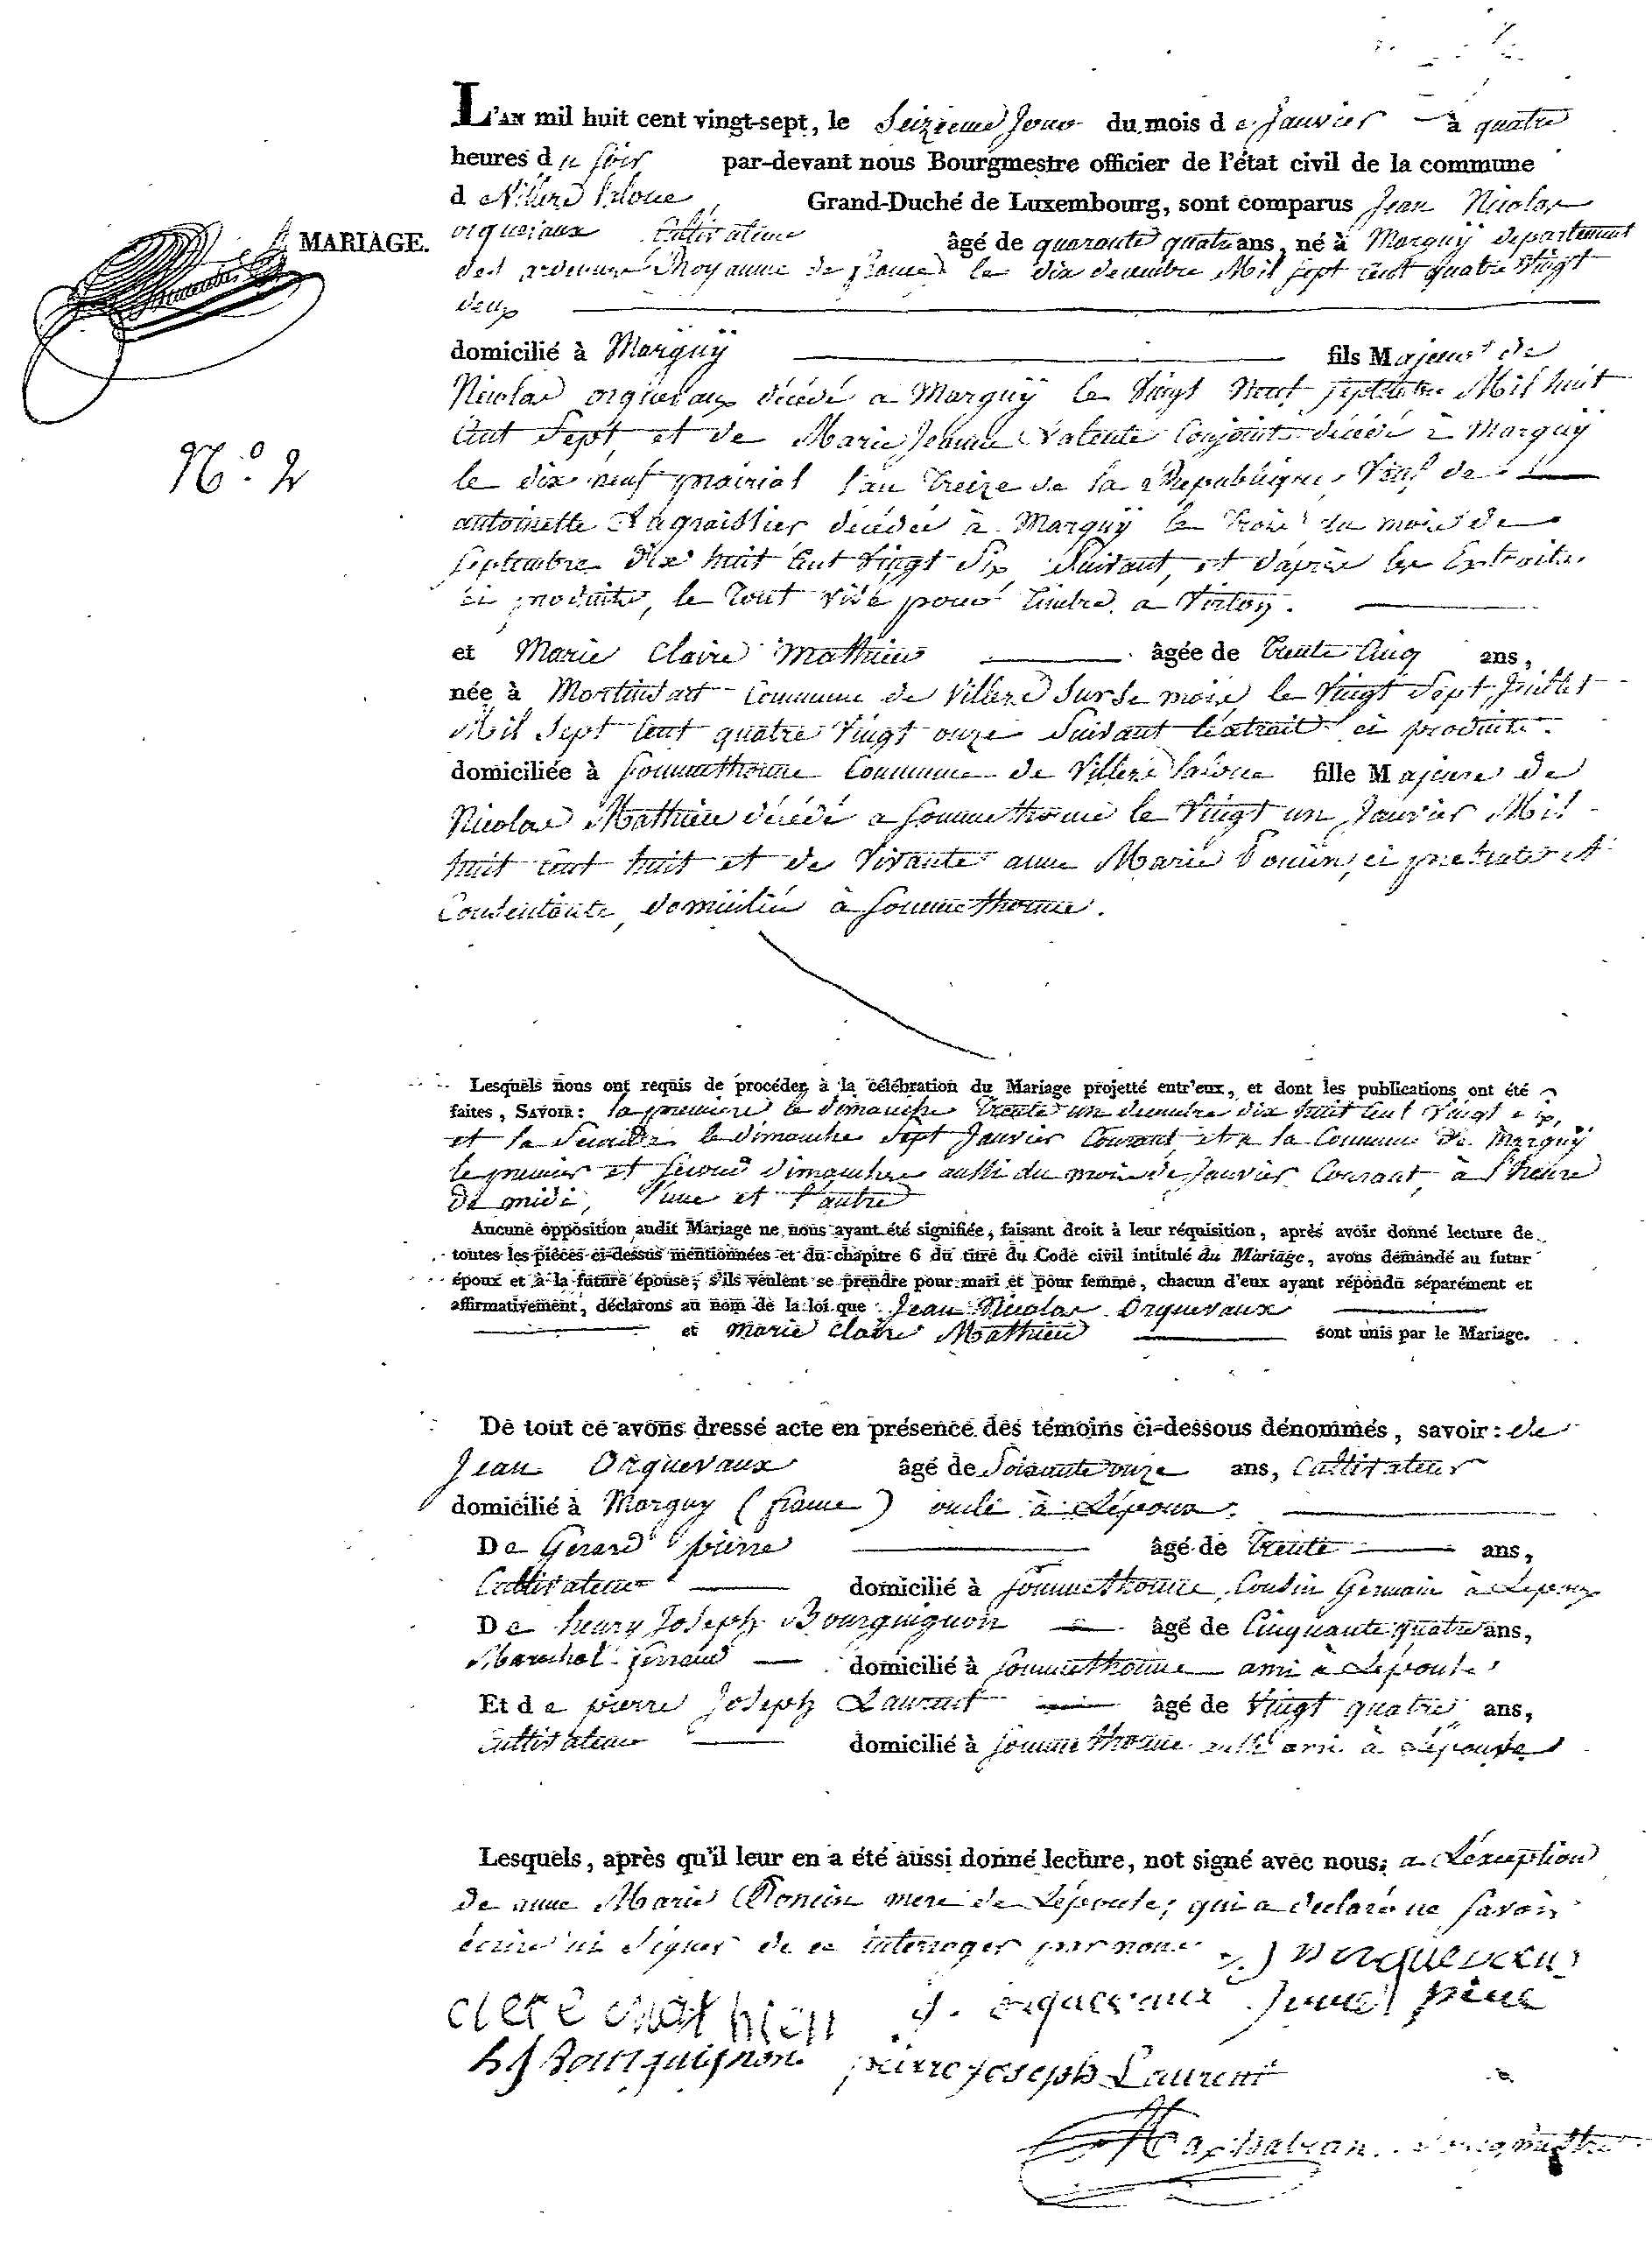 L'AN mil huit cent vingt-sept, le Seizieme Jour du mois de Janvier à quatre
heures du soir par-devant nous Bourgmestre officier de l'état civil de la commune
de Villers Laloue, Grand-Duché de Luxembourg, sont comparus Jean Nicolas
MARIAGE.
orquevaux Cultivateur âgé de quarante quatre ans, né à Marguÿ departement
des ardennes Royaume de france le dix decembre Mil sept cent quatre vingt
deux
domicilié à Marguÿ fils Majeur de
Nicolas orquevaux décédé a Marguÿ le Vingt Neuf septembre Mil huit
Cent Sept, et de Marie Jeanne Valente Conjoints décédé à Marguÿ
N.o 2
le dix neuf prairial l'an Treize de la Republique, Veuf de
antoinette Lagraissier décédée à Marguÿ le Trois du mois de
septembre dix huit Cent Vingt Six Suivant, et d'après les Extraits
ci produits, le Tout visé pour Timbre a Virton.
et Marie Claire Mathieu âgée de Trente Cinq ans,
née à Montinsart Commune de Villers Sur Semois, le Vingt Sept Juillet
Mil Sept Cent quatre Vingt onze Suivant l'extrait ci produit.
domiciliée à Sommethonne Commune de Villers Laloue fille Majeure de
Nicolas Mathieu décédé a Sommethonne le Vingt un Janvier Mil
huit cent huit et de Vivante anne Marie Poncin, ci presente et
Consentante, domiciliée à Sommethonne.
Lesquels nous ont requis de procéder à la célébration du Mariage projetté entr'eux, et dont les publications ont été
faites, SAVOIR: la premiere le dimanche Trente un decembre dix huit Cent Vingt six,
et la Seconde le dimanche Sept Janvier Courant et a la Commune de Marguÿ
le premier et second dimanches aussi du mois de Janvier Courant, à l'heure
de midi, l'une et l'autre
Aucune opposition audit Mariage ne nous ayant été signifiée, faisant droit à leur réquisition, après avoir donné lecture de
toutes les pièces ci-dessus mentionnées et du chapitre 6 du titre du Code civil intitulé du Mariage, avons demandé au futur
époux et à la future épouse, s'ils veulent se prendre pour mari et pour femme, chacun d'eux ayant répondu séparément et
affirmativement, déclarons au nom de la loi que Jean Nicolas Orquevaux
et Marie Claire Mathieu sont unis par le Mariage.
De tout ce avons dressé acte en présence des témoins ci-dessous dénommés, savoir: de
Jean Orquevaux âgé de Soixante onze ans, Cultivateur
domicilié à Marguy (france) oncle à L'époux.
De Gerard pierre âgé de Trente ans,
Cultivateur domicilié à Sommethonne, Cousin Germain à Lepoux
De henry Joseph Bourguignon âgé de Cinquante quatre ans,
Marechal ferrant domicilié à Sommethonne ami à L'épouse
Et de pierre Joseph Laurent âgé de Vingt quatre ans,
Cultivateur domicilié à Sommethonne ami à L'épouse
Lesquels, après qu'il leur en a été aussi donné lecture, not signé avec nous, a L'exception
de anne Marie Poncin mere de L'épouse, qui a declaré ne savoir
écrire ni Signer de ce interroger par nous J N orquevaux
clere mathieu j. orquevaux
h J Bourguignon pierre joseph Laurent